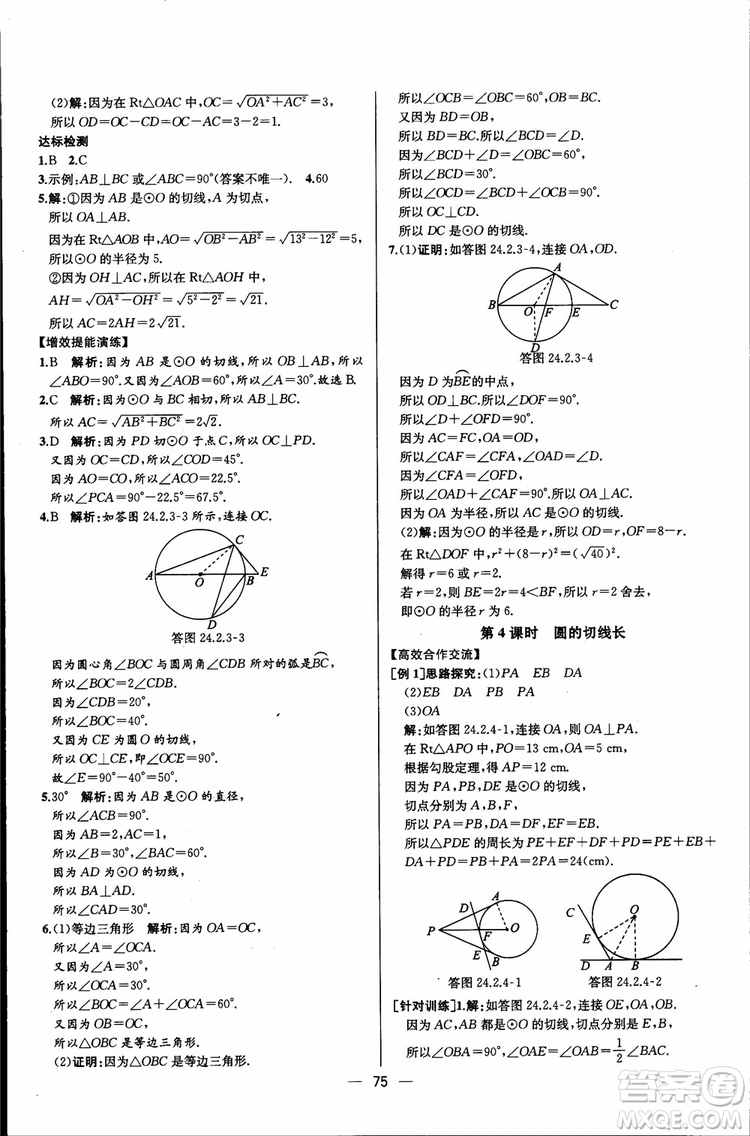 (2)解:因为在 Rt△OAC 中,OC=√(OA²+AC²)=3,
所以 OD=OC-CD=OC-AC=3-2=1.
达标检测
1.B 2.C
3.示例:AB⊥BC 或∠ABC=90°(答案不唯一). 4.60
5.解:①因为 AB 是⊙O 的切线,A 为切点,
所以 OA⊥AB.
因为在 Rt△AOB 中,AO=√(OB²-AB²)=√(13²-12²)=5,
所以⊙O 的半径为 5.
②因为 OH⊥AC,所以在 Rt△AOH 中,
AH=√(OA²-OH²)=√(5²-2²)=√21.
所以 AC=2AH=2√21.
【增效提能演练】
1.B 解析:因为 AB 是⊙O 的切线,所以 OB⊥AB,所以
∠ABO=90°.因为∠AOB=60°,所以∠A=30°.故选 B.
2.C 解析:因为⊙O 与 BC 相切,所以 AB⊥BC.
所以 AC=√(AB²+BC²)=2√2.
3.D 解析:因为 PD 切⊙O 于点 C,所以 OC⊥PD.
又因为 OC=CD,所以∠COD=45°.
因为 AO=CO,所以∠ACO=22.5°.
所以∠PCA=90°-22.5°=67.5°.
4.B 解析:如答图 24.2.3-3 所示,连接 OC.
C
A
O
B
E
D
答图 24.2.3-3
因为圆心角∠BOC 与圆周角∠CDB 所对的弧是BC⌒,
所以∠BOC=2∠CDB.
因为∠CDB=20°,
所以∠BOC=40°.
又因为 CE 为圆 O 的切线,
所以 OC⊥CE,即∠OCE=90°.
故∠E=90°-40°=50°.
5.30° 解析:因为 AB 是⊙O 的直径,
所以∠ACB=90°.
因为 AB=2,AC=1,
所以∠B=30°,∠BAC=60°.
因为 AD 为⊙O 的切线,
所以 BA⊥AD.
所以∠CAD=30°.
6.(1)等边三角形 解析:因为 OA=OC,
所以∠A=∠OCA.
又因为∠A=30°,
所以∠A=∠OCA=30°.
所以∠BOC=∠A+∠OCA=60°.
又因为 OB=OC,
所以△OBC 是等边三角形.
(2)证明:因为△OBC 是等边三角形,
所以∠OCB=∠OBC=60°,OB=BC.
又因为 BD=OB,
所以 BD=BC.所以∠BCD=∠D.
因为∠BCD+∠D=∠OBC=60°,
所以∠BCD=30°.
所以∠OCD=60°+30°=90°.
所以 OC⊥CD.
所以 DC 是⊙O 的切线.
7.(1)证明:如答图 24.2.3-4,连接 OA,OD.
A
B
O
F
E
C
D
答图 24.2.3-4
因为 D 为BE⌒的中点,
所以 OD⊥BC,∠DOF=90°.
所以∠D+∠OFD=90°.
因为 AC=FC,OA=OD,
所以∠CAF=∠CFA,∠OAD=∠D.
因为∠CFA=∠OFD,
所以∠OAD+∠CAF=90°.
所以 OA⊥AC,所以 AC 是⊙O 切线.
(2)解:因为⊙O 的半径是 r,所以 OD=r,OF=8-r.
在 Rt△DOF 中,r²+(8-r)²=(√40)².
解得 r=6 或 r=2.
若 r=2,则 BE=2r=4<BF,所以 r=2 舍去,
即⊙O 的半径为 6.
第 4 课时 圆的切线长
【高效合作交流】
[例 1]思路探究:(1)PA EB DA
(2)EB DA PA
(3)OA
解:如答图 24.2.4-1,连接 OA,则 OA⊥PA.
在 Rt△APO 中,PO=13 cm,OA=5 cm,
根据勾股定理,得 AP=12 cm.
因为 PA,PB,DE 是⊙O 的切线,
切点分别为 A,B,F,
所以 PA=PB,DA=DF,EF=EB.
所以△PDE 的周长为 PE+EF+DF+PD=PE+EB+
DA+PD=PB+PA=2PA=24(cm).
D
A
P
F
O
E
B
答图 24.2.4-1
C
O
E
D
A
B
答图 24.2.4-2
[针对训练]1.解:如答图 24.2.4-2,连接 OE,OA,OB.
因为 AC,AB 都是⊙O 的切线,切点分别是 E,B,
所以∠OBA=90°,∠OAE=∠OAB=1/2∠BAC.
— 75 —
答案圈